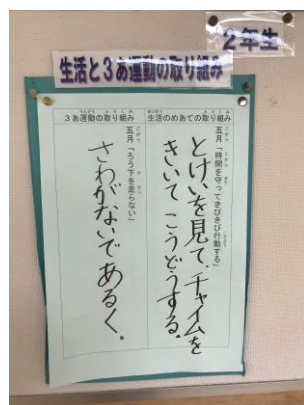 2年生
生活と3あ運動の取り組み
生活のめあての取り組み
五月「時間を守ってきびきび行動する」
とけいを見て、チャイムを
きいて こうどうする。
3あ運動の取り組み
五月「ろう下を走らない」
さわがないであるく。